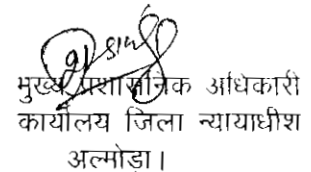 मुख्य प्रशासनिक अधिकारी
कार्यालय जिला न्यायाधीश
अल्मोड़ा।